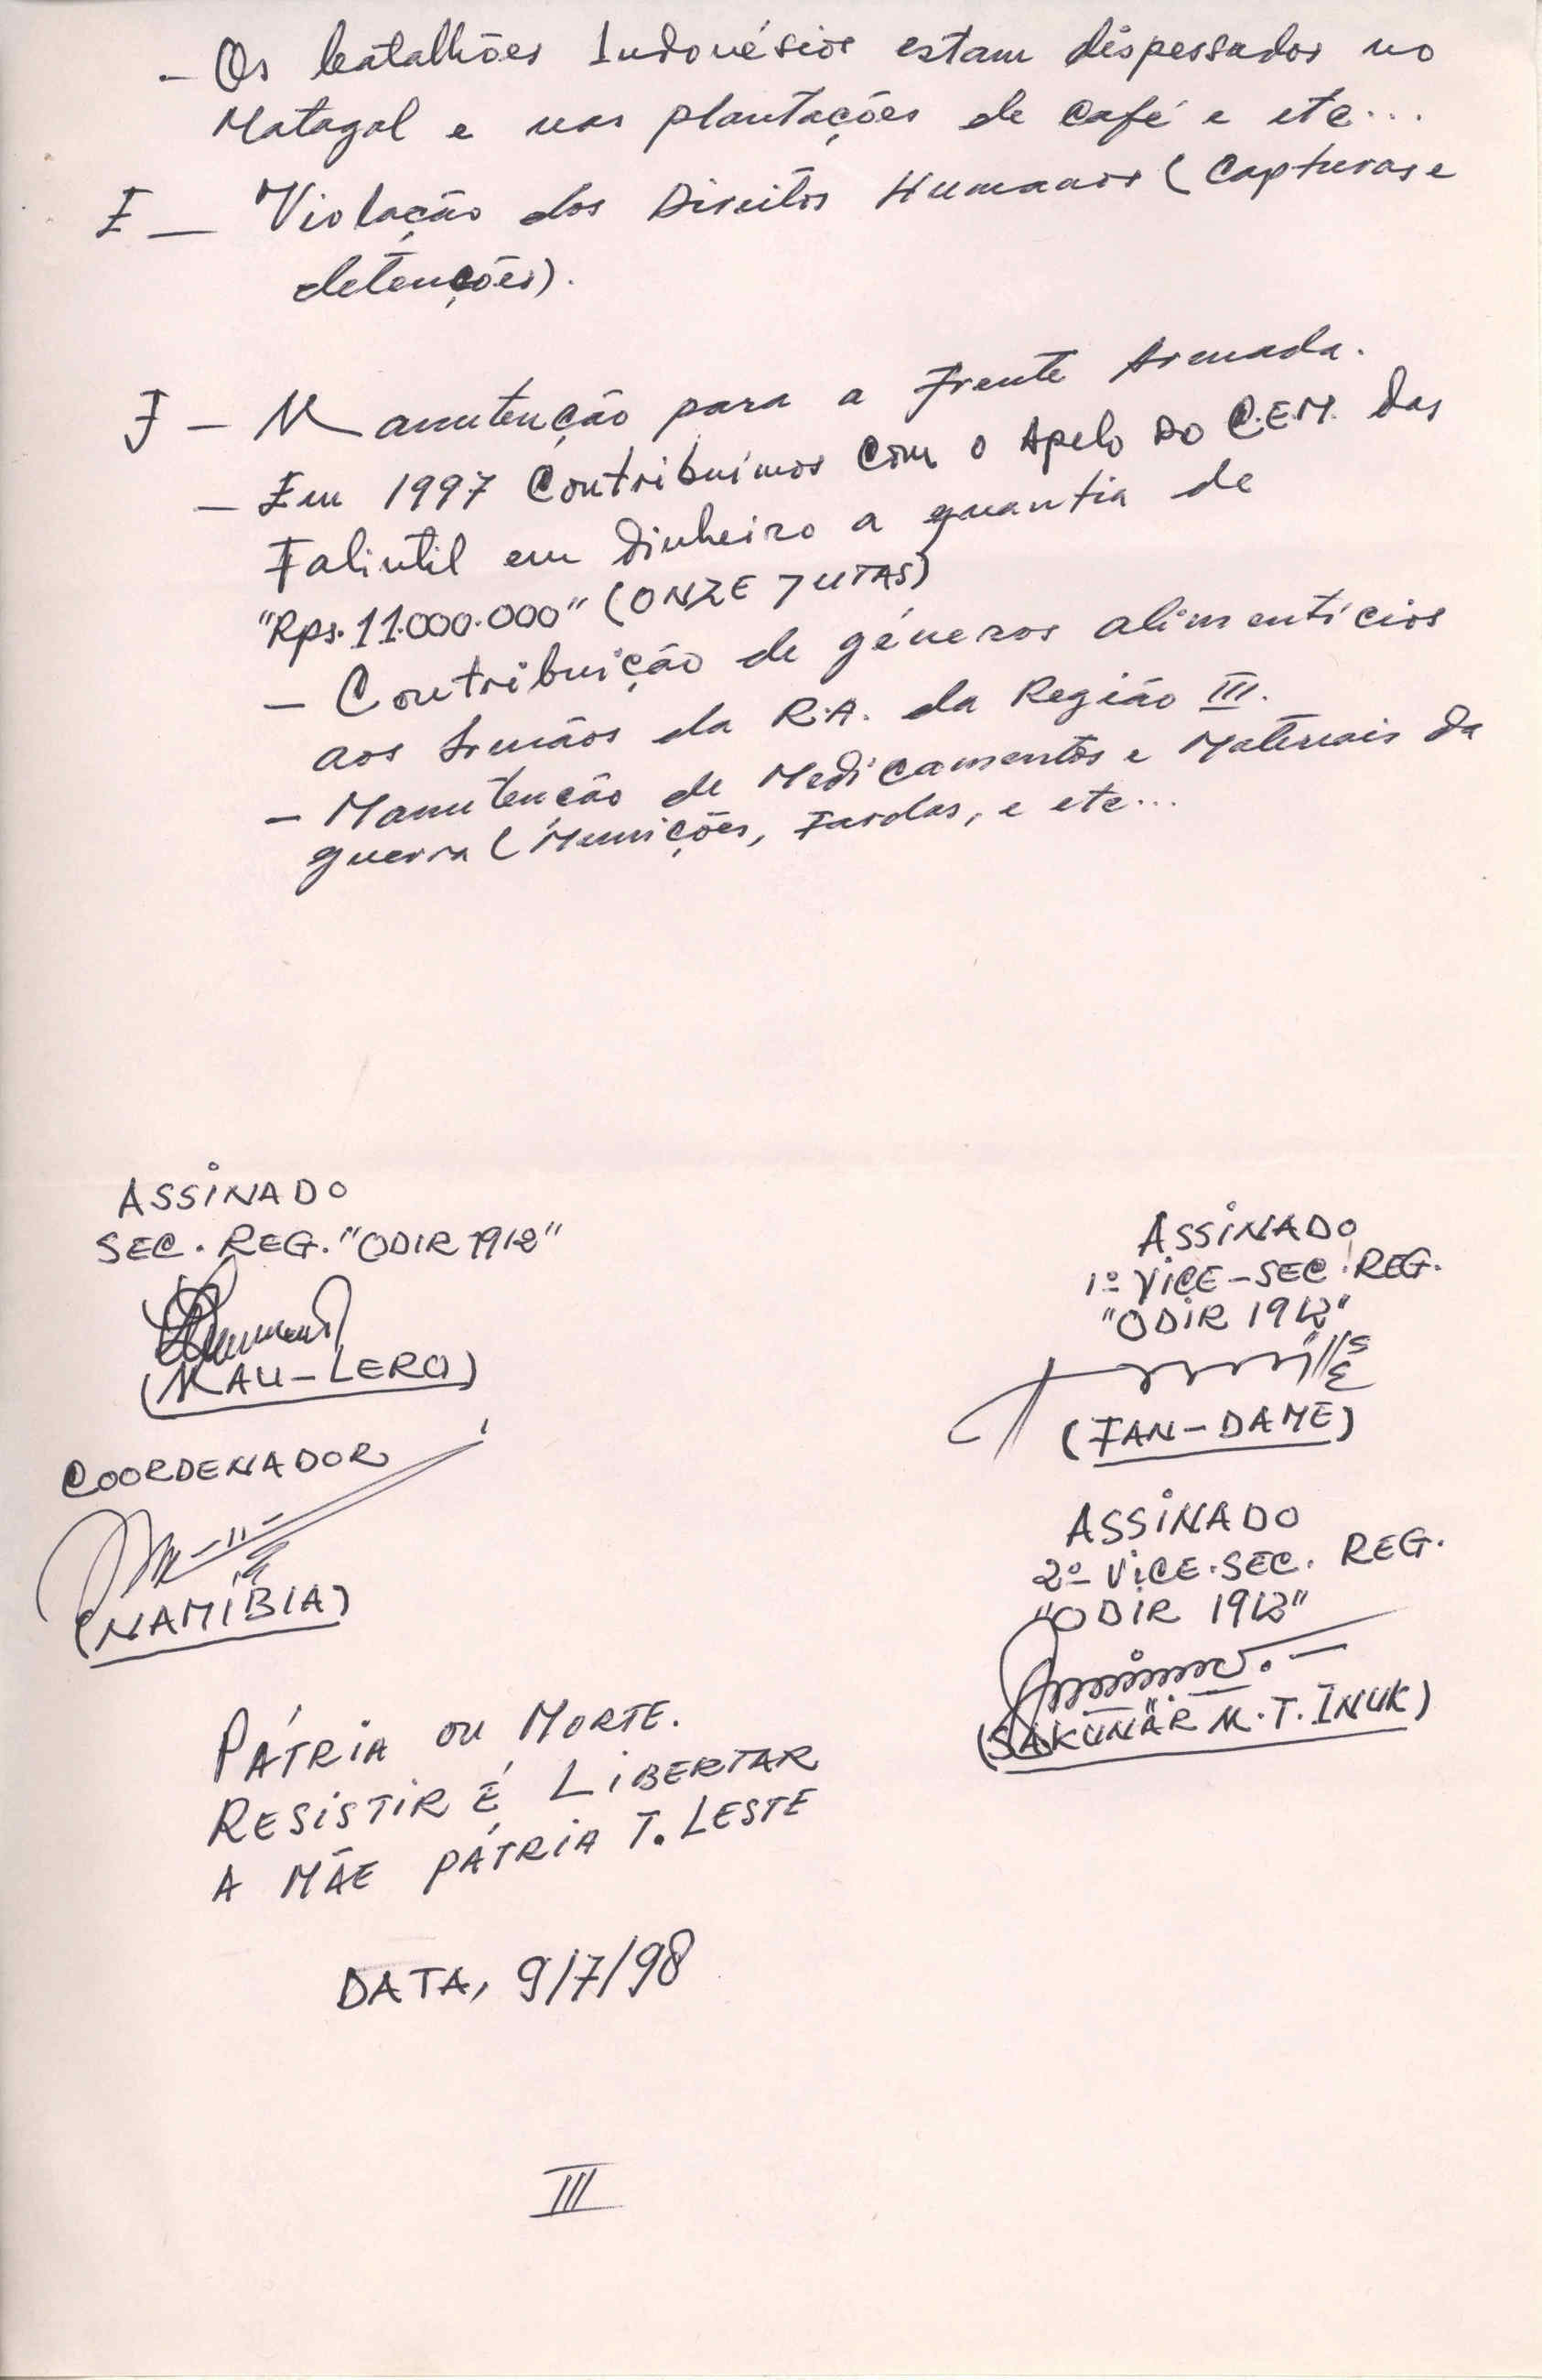 - Os batalhões Indonésios estam dispessados no
Matagal e nas plantações de Café e etc...
E - Violação dos Direitos Humanos (Capturas e
detenções).
F - Manutenção para a Frente Armada.
- Em 1997 Contribuimos com o Apelo DO C.E.M. das
Falintil em dinheiro a quantia de
"Rps. 11.000.000" (ONZE JUTAS)
- Contribuição de géneros alimentícios
aos Irmãos da R.A. da Região III.
- Manutenção de Medicamentos e Materiais da
guerra (Munições, Fardas, e etc...
ASSINADO
SEC. REG. "ODIR 1912"
(MAU-LERO)
COORDENADOR
(NAMÍBIA)
ASSINADO
1º VICE-SEC. REG.
"ODIR 1912"
(FAN-DAME)
ASSINADO
2º VICE.SEC. REG.
"ODIR 1912"
(SAKUNAR M.T. INUK)
PÁTRIA OU MORTE.
RESISTIR É LIBERTAR
A MÃE PÁTRIA T. LESTE
DATA, 9/7/98
III